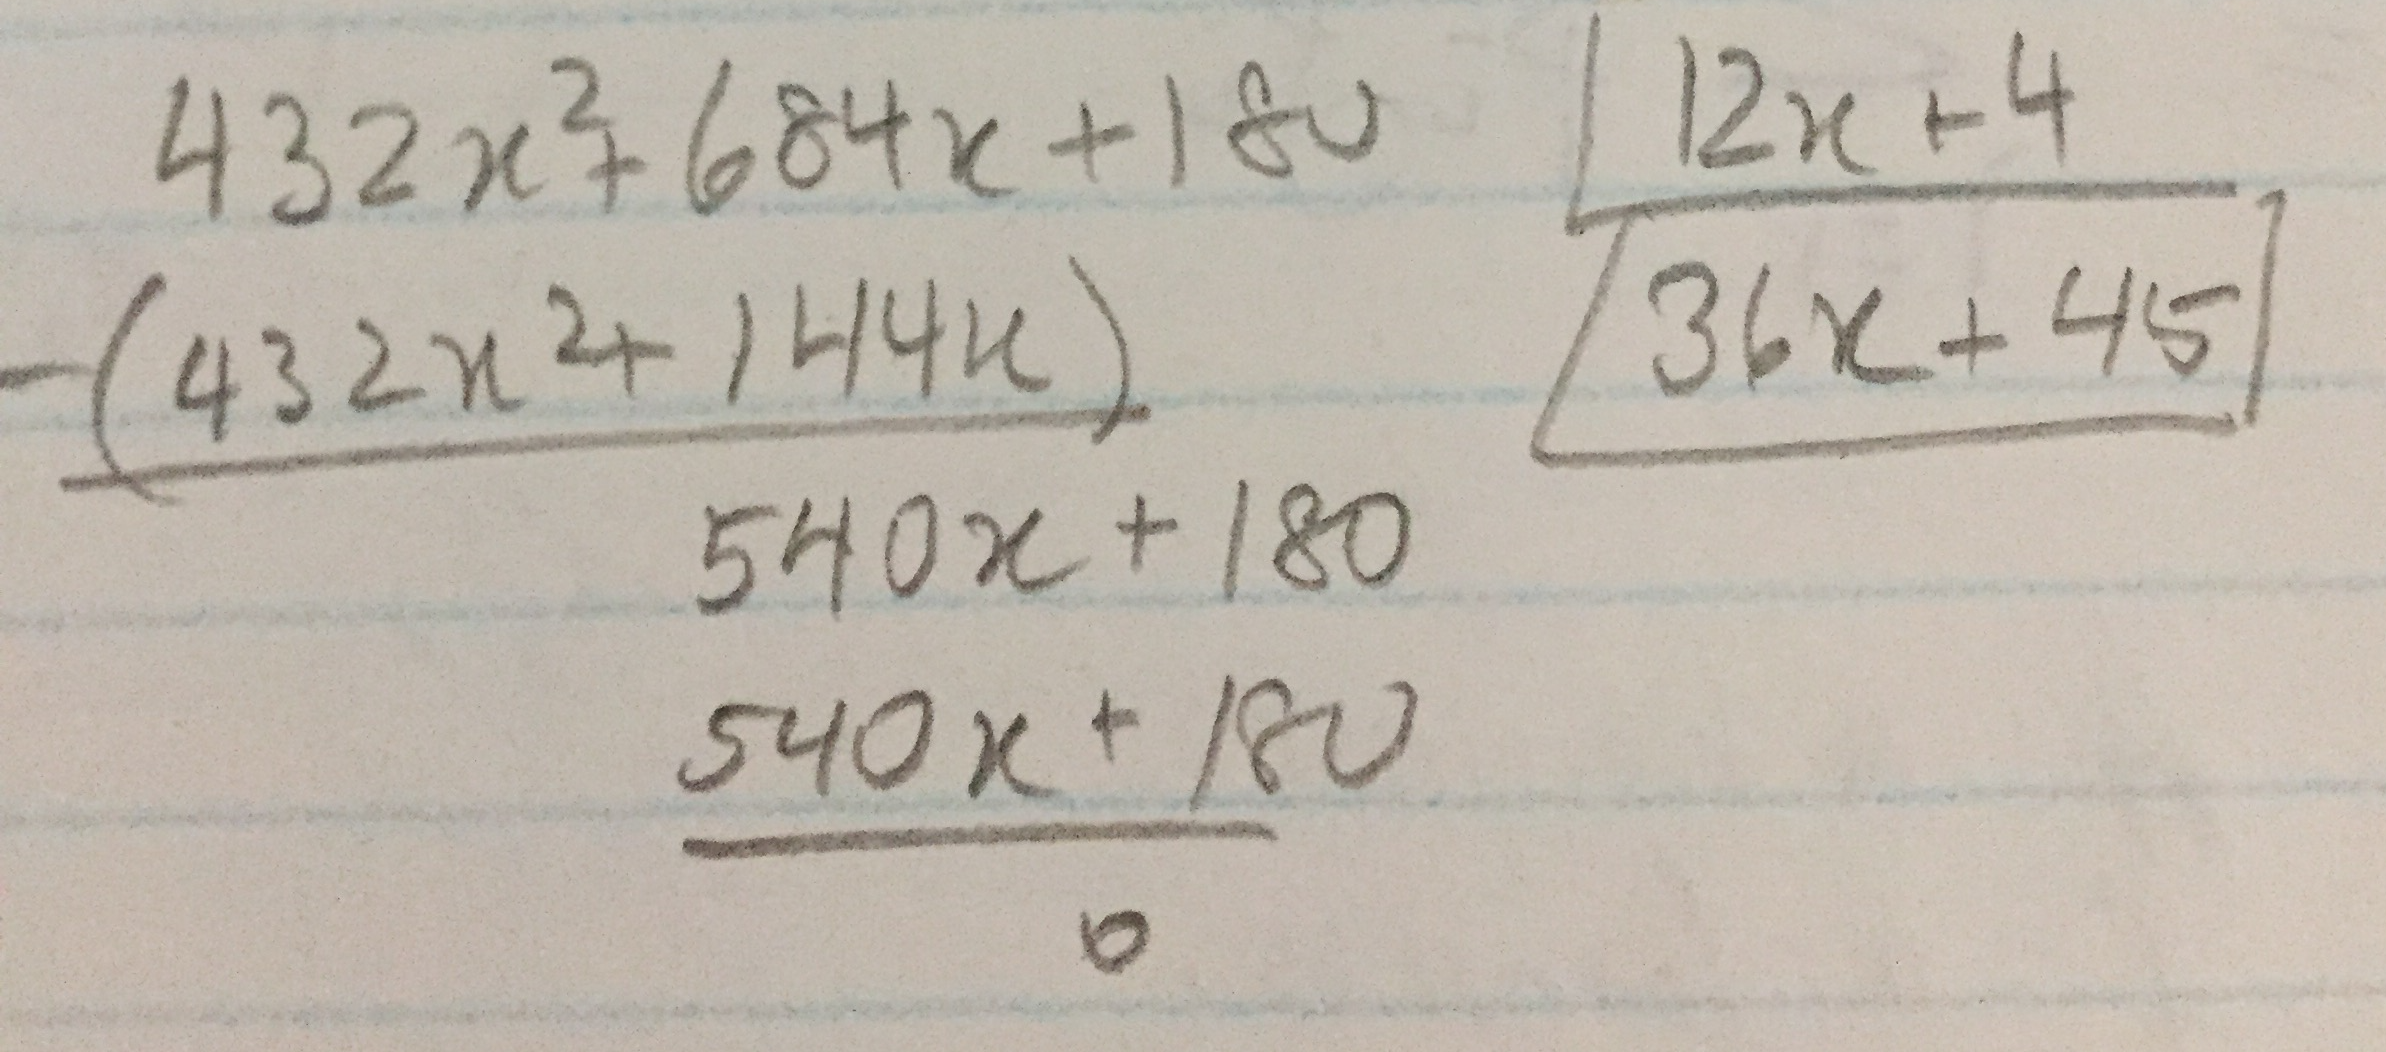 432x²+684x+180 12x+4
-(432x²+144x) 36x+45
540x+180
540x+180
0